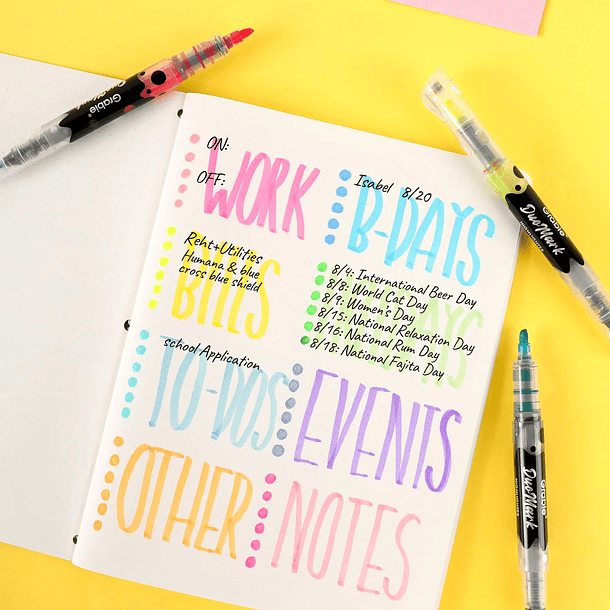 Grabie
DuoMark
Grabie
DuoMark
ON:
OFF:
WORK
Isabel 8/20
B-DAYS
Reht+Utilities
Humana & blue
cross blue shield
BILLS
8/4: International Beer Day
8/8: World Cat Day
8/9: Women's Day
8/15: National Relaxation Day
8/16: National Rum Day
8/18: National Fajita Day
school Application
TO-DOS
EVENTS
OTHER
NOTES
Grabie
DuoMark